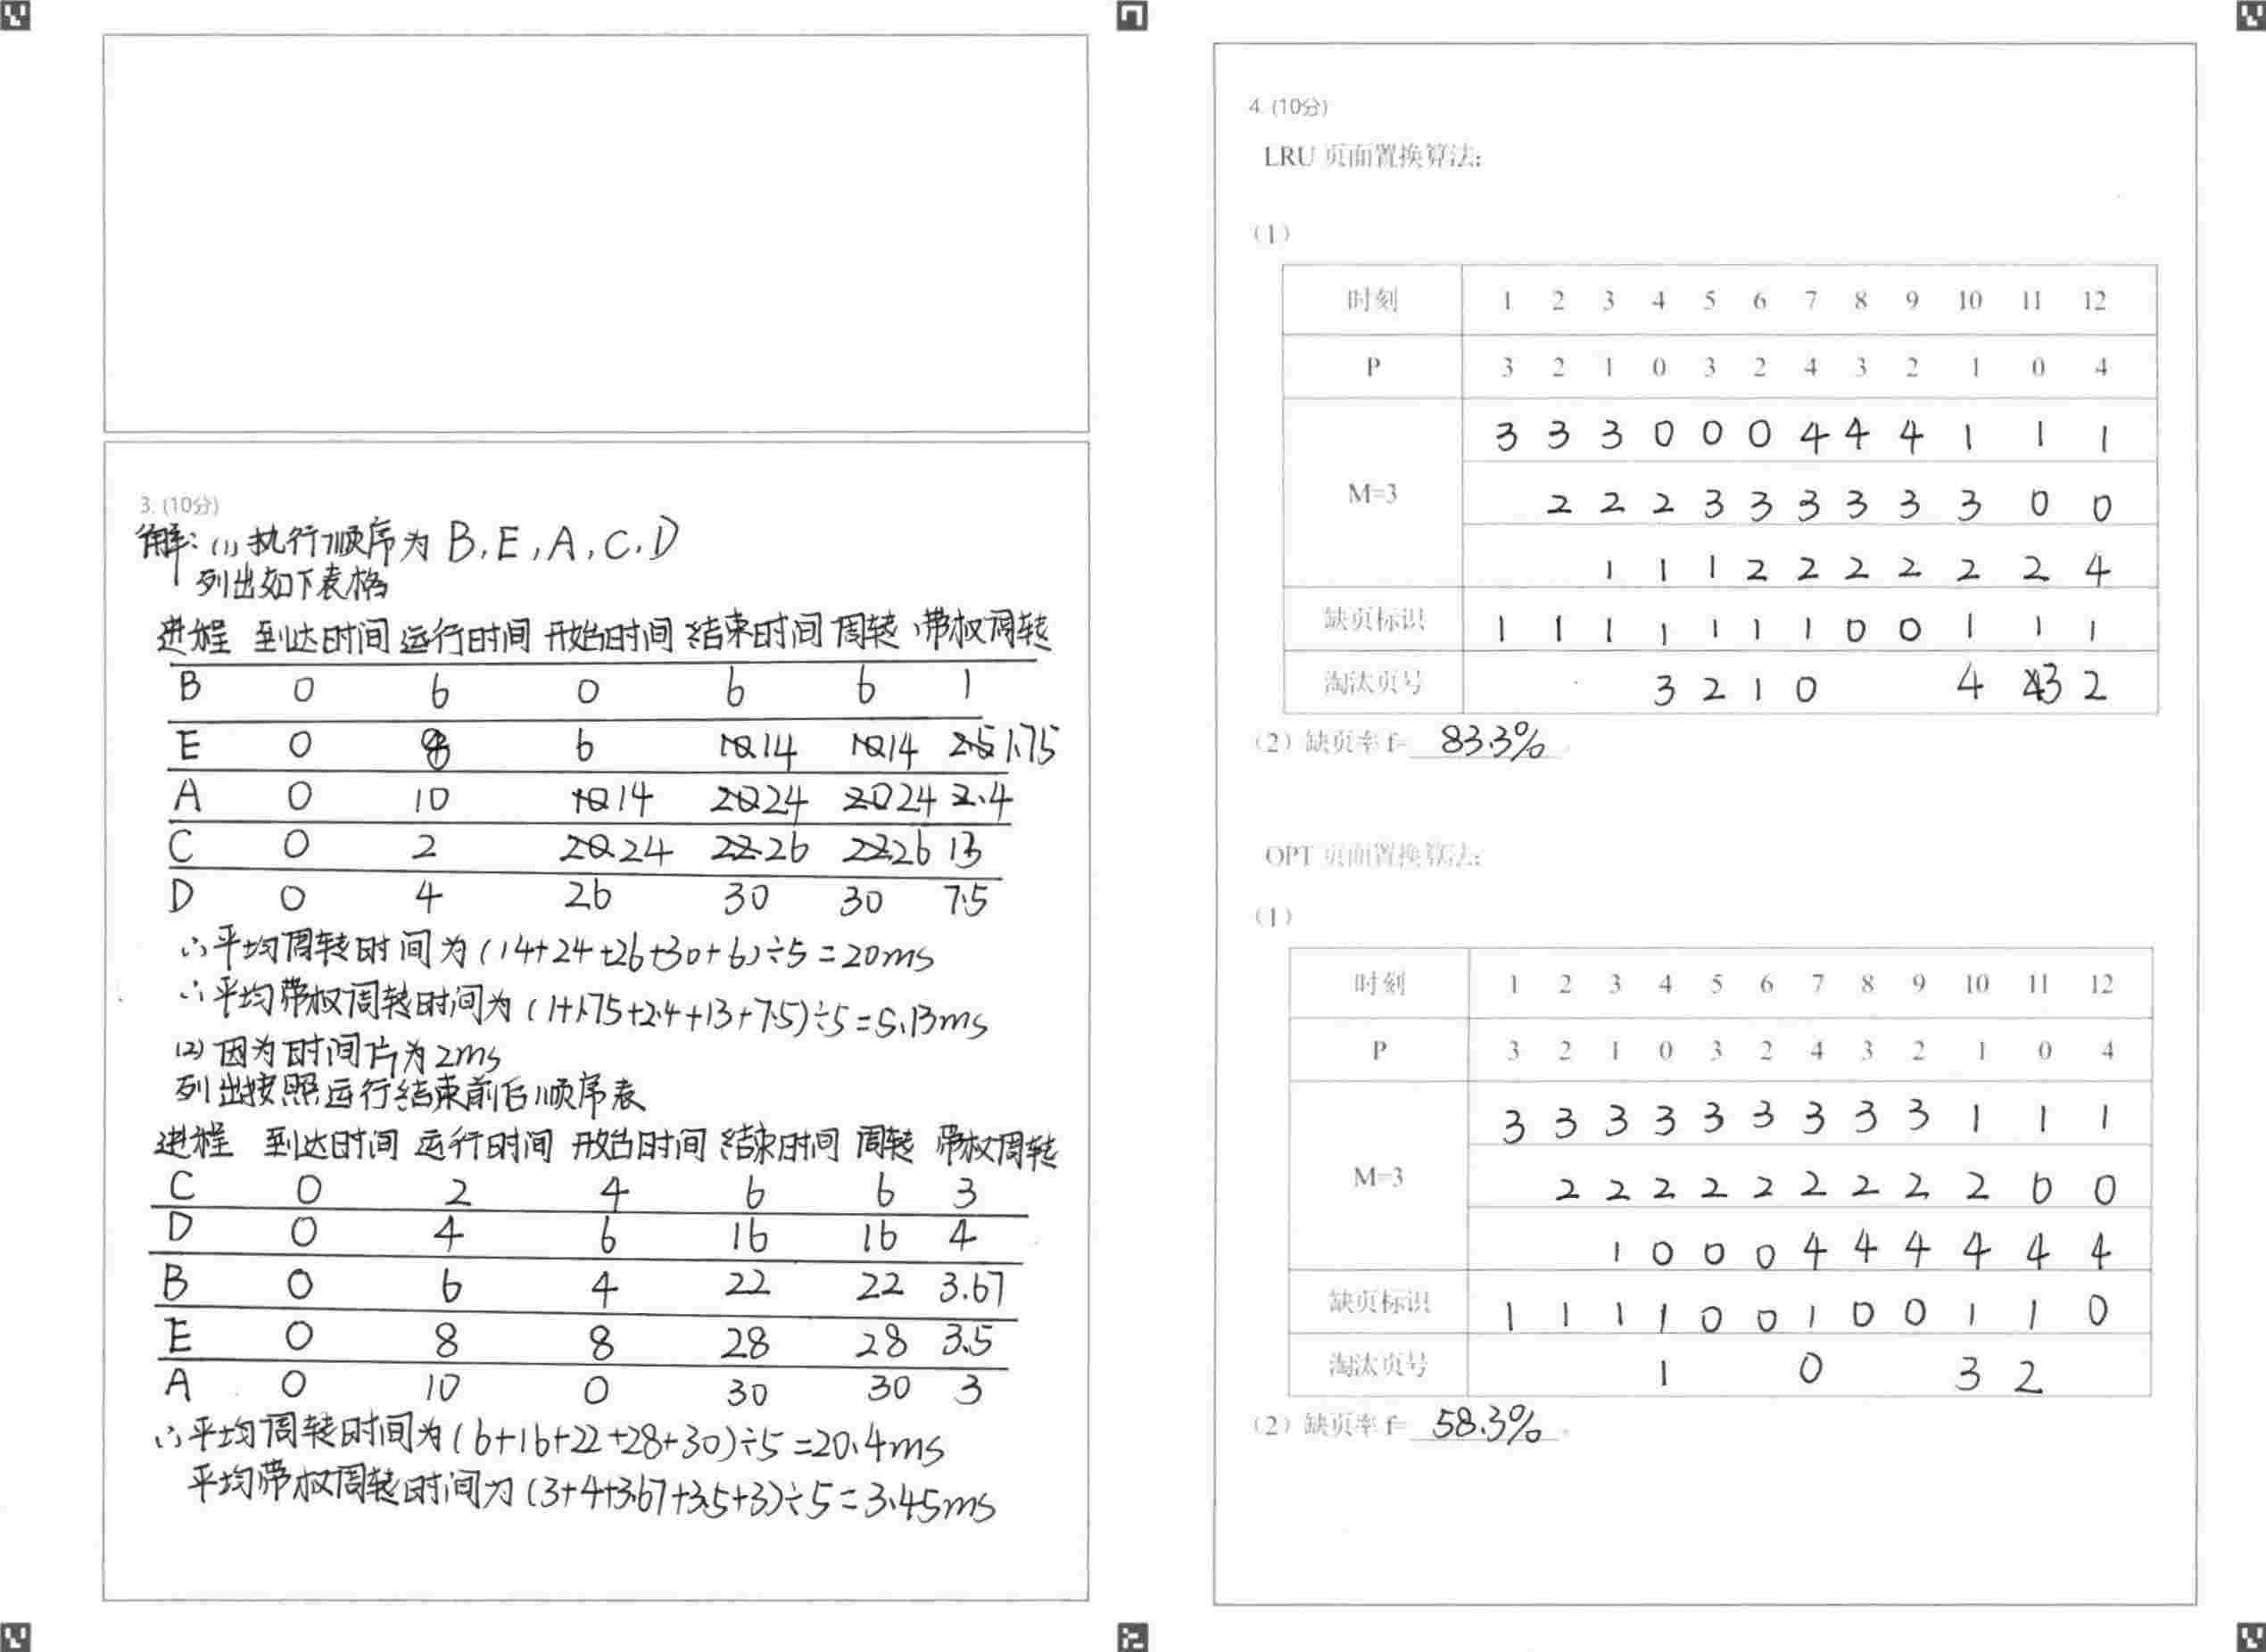 3. (10分)
解:(1)执行顺序为 B,E,A,C,D
列出如下表格
进程 到达时间 运行时间 开始时间 结束时间 周转 带权周转
B 0 6 0 6 6 1
E 0 8 6 14 14 1.75
A 0 10 14 24 24 2.4
C 0 2 24 26 26 13
D 0 4 26 30 30 7.5
∴平均周转时间为(14+24+26+30+6)÷5=20ms
∴平均带权周转时间为(1+1.75+2.4+13+7.5)÷5=5.13ms
(2)因为时间片为2ms
列出按照运行结束前后顺序表
进程 到达时间 运行时间 开始时间 结束时间 周转 带权周转
C 0 2 4 6 6 3
D 0 4 6 16 16 4
B 0 6 4 22 22 3.67
E 0 8 8 28 28 3.5
A 0 10 0 30 30 3
∴平均周转时间为(6+16+22+28+30)÷5=20.4ms
平均带权周转时间为(3+4+3.67+3.5+3)÷5=3.45ms
4. (10分)
LRU 页面置换算法:
(1)
时刻 1 2 3 4 5 6 7 8 9 10 11 12
P 3 2 1 0 3 2 4 3 2 1 0 4
3 3 3 0 0 0 4 4 4 1 1 1
M=3 2 2 2 3 3 3 3 3 3 0 0
1 1 1 2 2 2 2 2 2 4
缺页标识 1 1 1 1 1 1 1 0 0 1 1 1
淘汰页号 3 2 1 0 4 3 2
(2)缺页率 f= 83.3%。
OPT 页面置换算法:
(1)
时刻 1 2 3 4 5 6 7 8 9 10 11 12
P 3 2 1 0 3 2 4 3 2 1 0 4
3 3 3 3 3 3 3 3 3 1 1 1
M=3 2 2 2 2 2 2 2 2 2 0 0
1 0 0 0 4 4 4 4 4 4
缺页标识 1 1 1 1 0 0 1 0 0 1 1 0
淘汰页号 1 0 3 2
(2)缺页率 f= 58.3%。